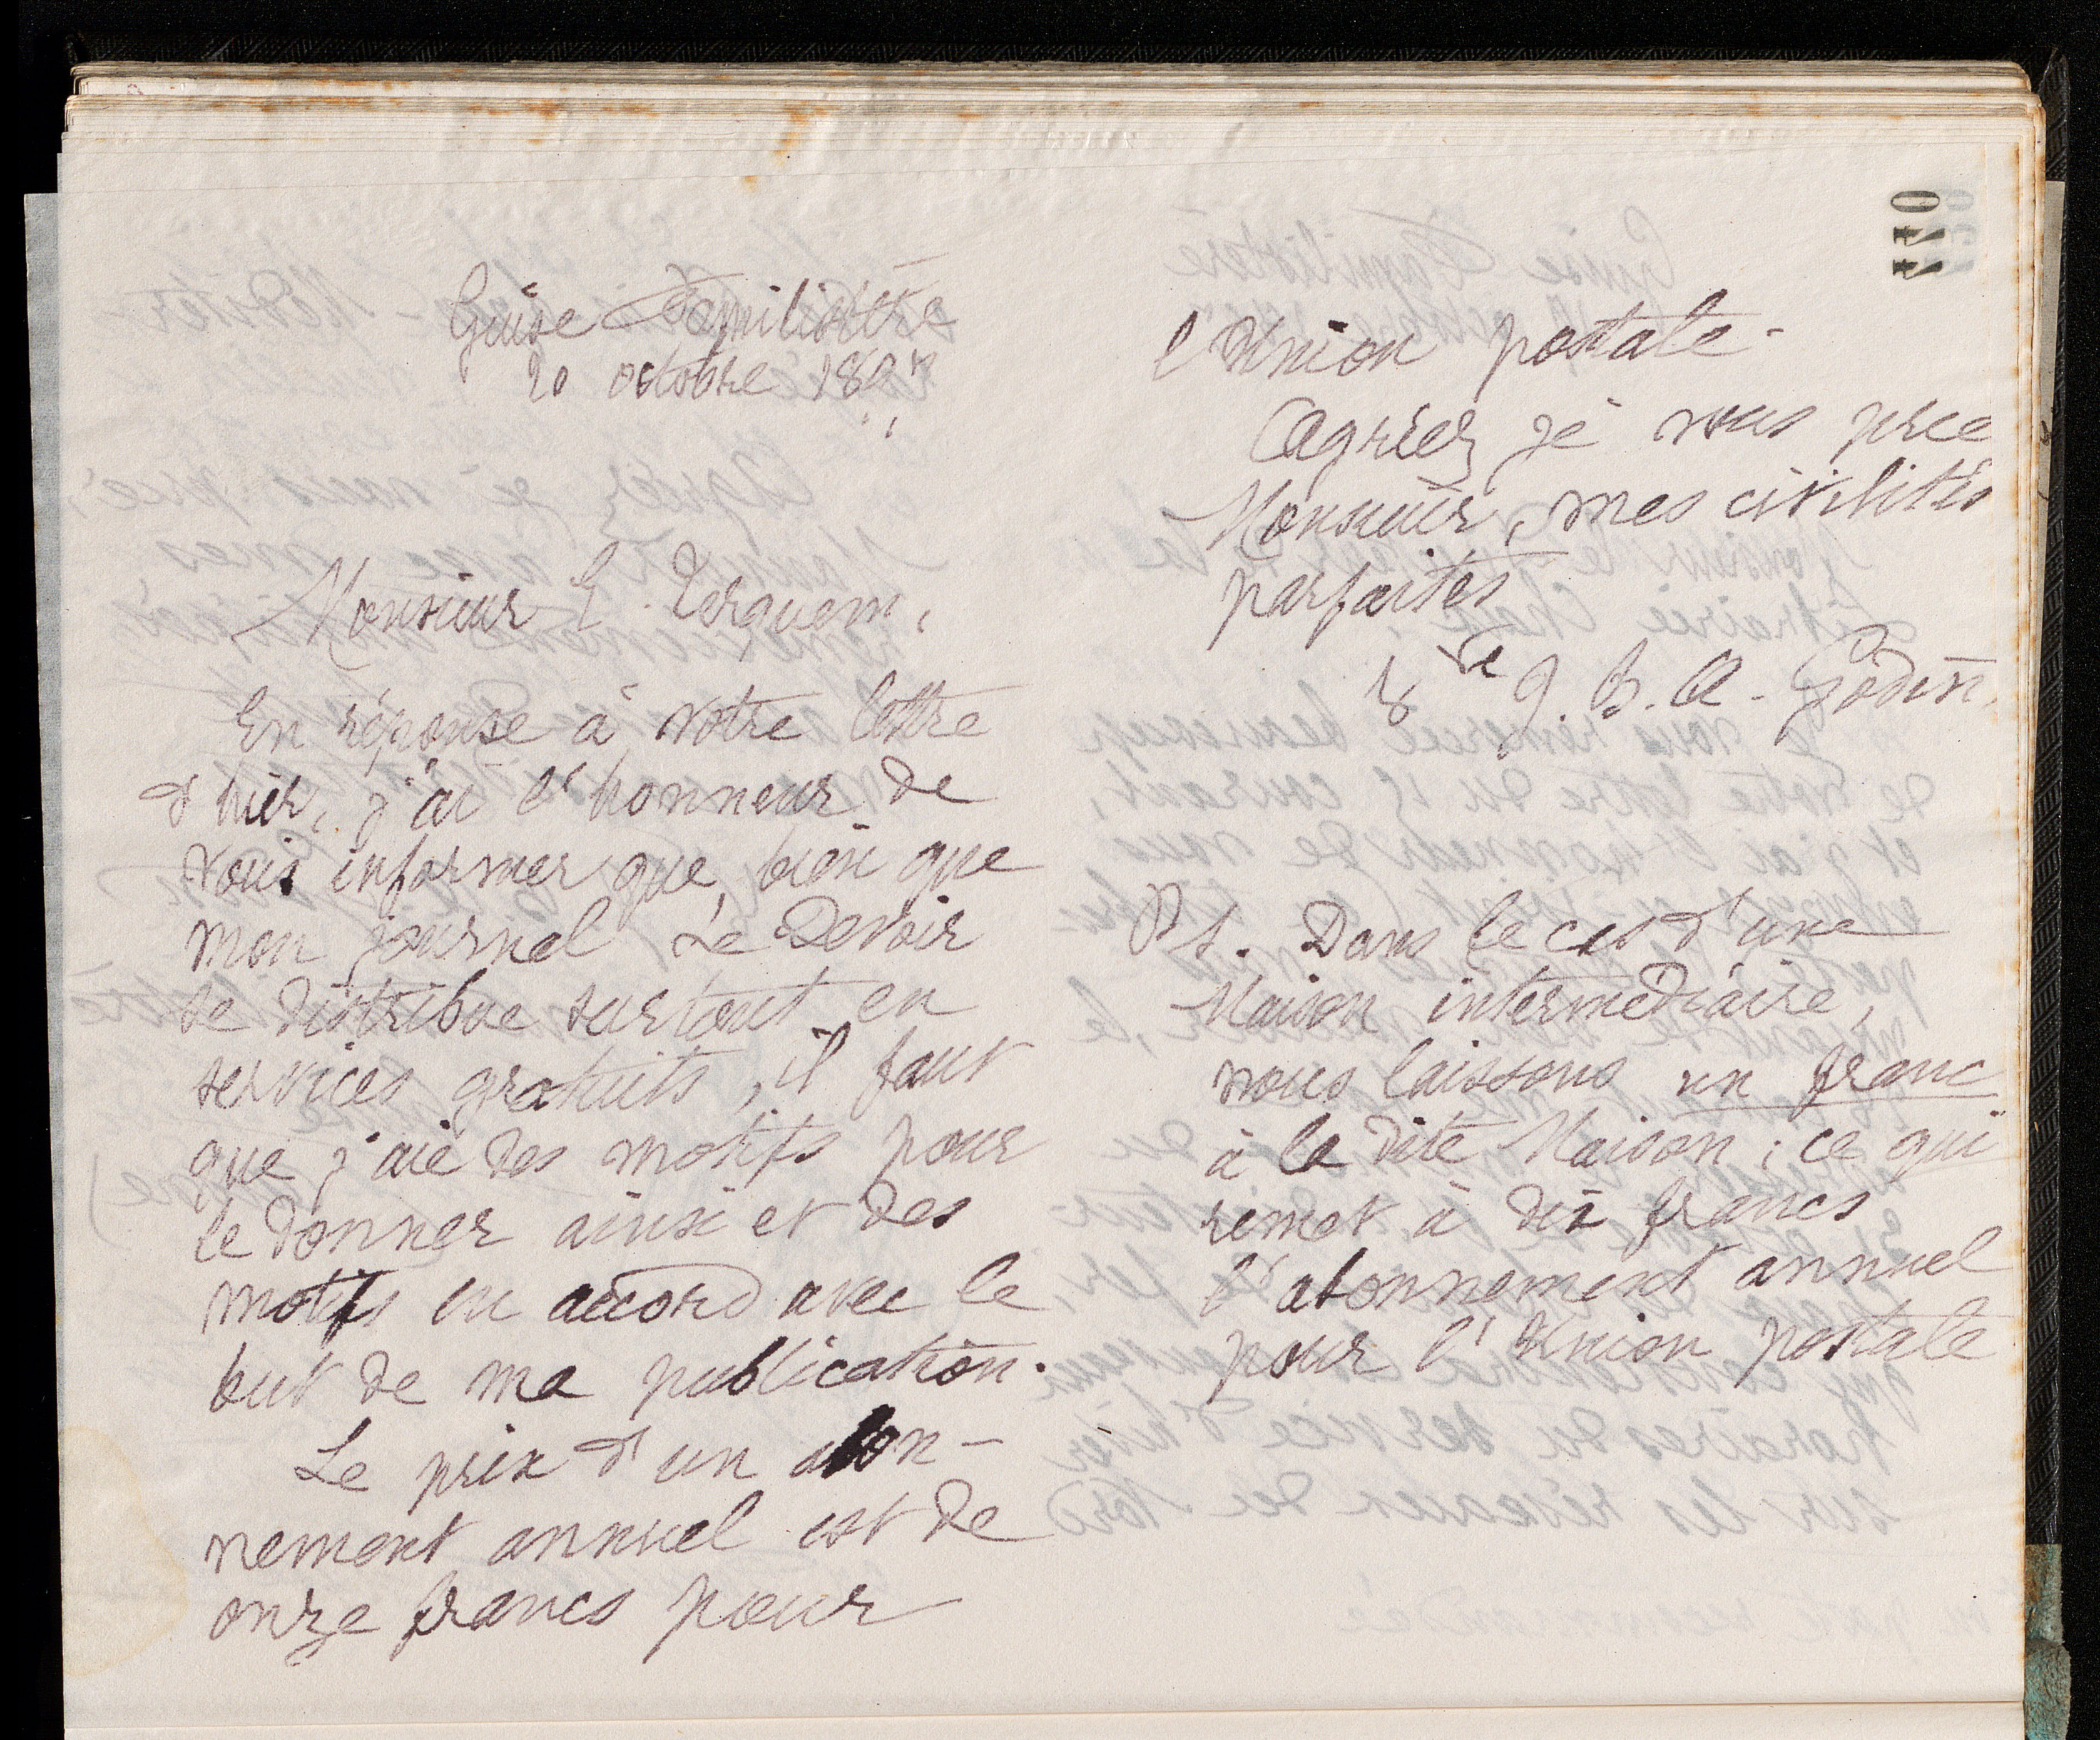 Guise Familistère
20 octobre 189
Monsieur E. Terquem,
En réponse à votre lettre
d'hier, j'ai l'honneur de
vous informer que, bien que
mon journal Le Devoir
se distribue surtout en
services gratuits, il faut
que j'aie des motifs pour
le donner ainsi et des
motifs en accord avec le
but de ma publication.
Le prix d'un abon-
nement annuel est de
onze francs pour
110
l'Union postale.
Agréez je vous prie
Monsieur, mes civilités
parfaites
Vve J. B. A. Godin
Ps. Dans le cas d'une
Maison intermédiaire,
nous laissons un franc
à la dite Maison ; ce qui
remet à dix francs
l'abonnement annuel
pour l'Union postale